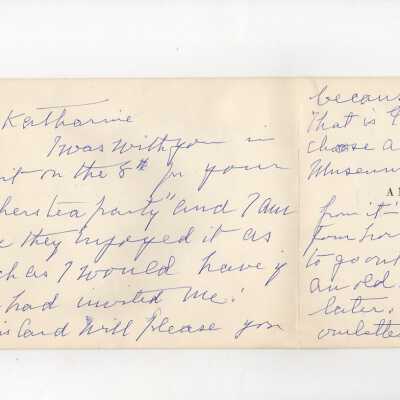 Katharine
I was with you in
on the 8th for your
tea party" and I am
they enjoyed it as
as I would have
had invited me!
Card will please you
becaus
That is
choose a
Museum
A
from it"
to go
an old
later.